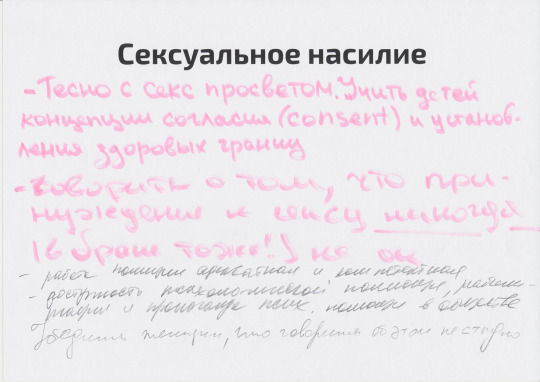 Сексуальное насилие
- Тесно с секс просветом. Учить детей
концепции согласия (consent) и установ-
ления здоровых границ
- Говорить о том, что при-
нуждение к сексу никогда
(в браке тоже!) не ок
- работа полиции адекватная и компетентная
- доступность психологической помощи,
и пропаганда псих. помощи в обществе
Убедить женщин, что говорить об этом не стыдно